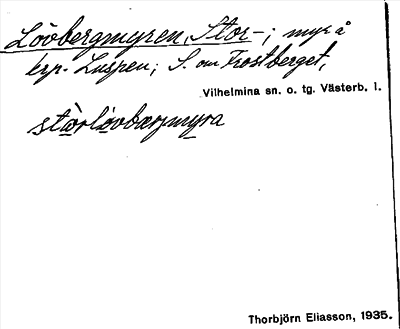 Lövbergmyren, Stor-; myr å
krp. Luspen; S. om Frostberget,
Vilhelmina sn. o. tg. Västerb. l.
stòrlövbærjmyra
Thorbjörn Eliasson, 1935.